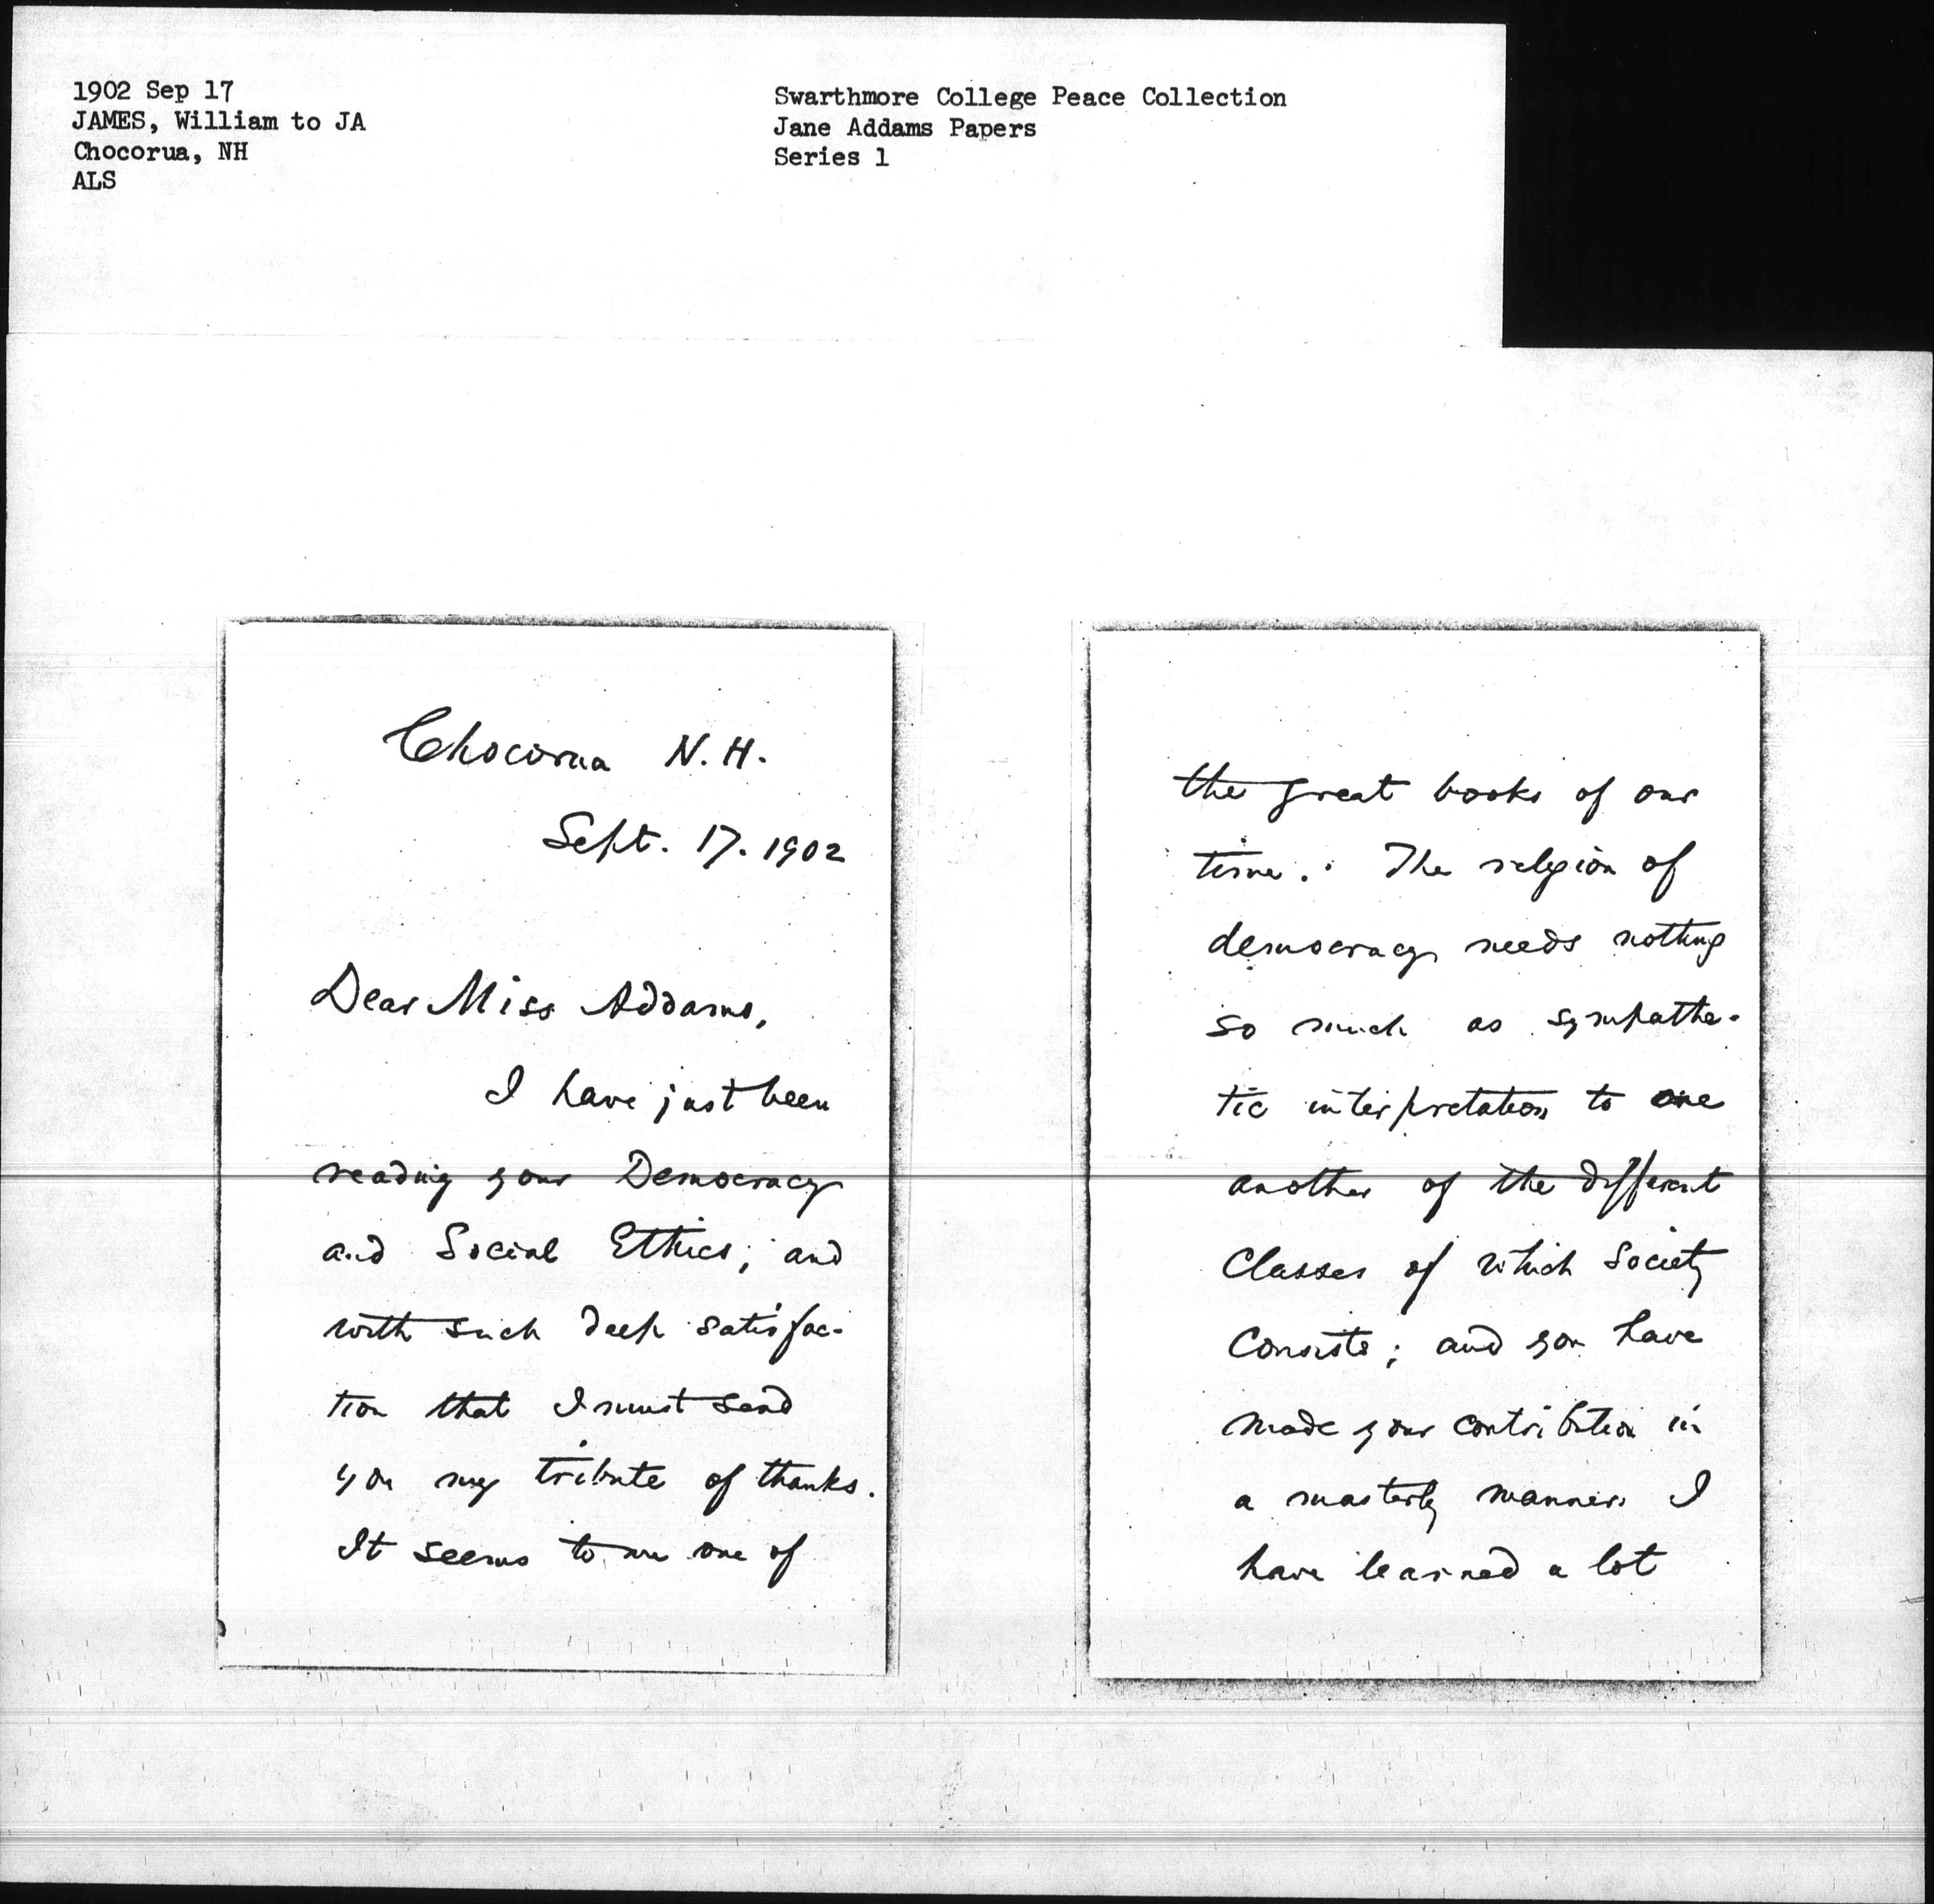 1902 Sep 17
JAMES, William to JA
Chocorua, NH
ALS
Swarthmore College Peace Collection
Jane Addams Papers
Series 1
Chocorua N.H.
Sept. 17. 1902
Dear Miss Addams,
I have just been
reading your Democracy
and Social Ethics; and
with such deep satisfac-
tion that I must send
you my tribute of thanks.
It seems to me one of
the great books of our
time. The religion of
democracy needs nothing
so much as sympathe-
tic interpretation to one
another of the different
classes of which Society
consists; and you have
made your contribution in
a masterly manner. I
have learned a lot